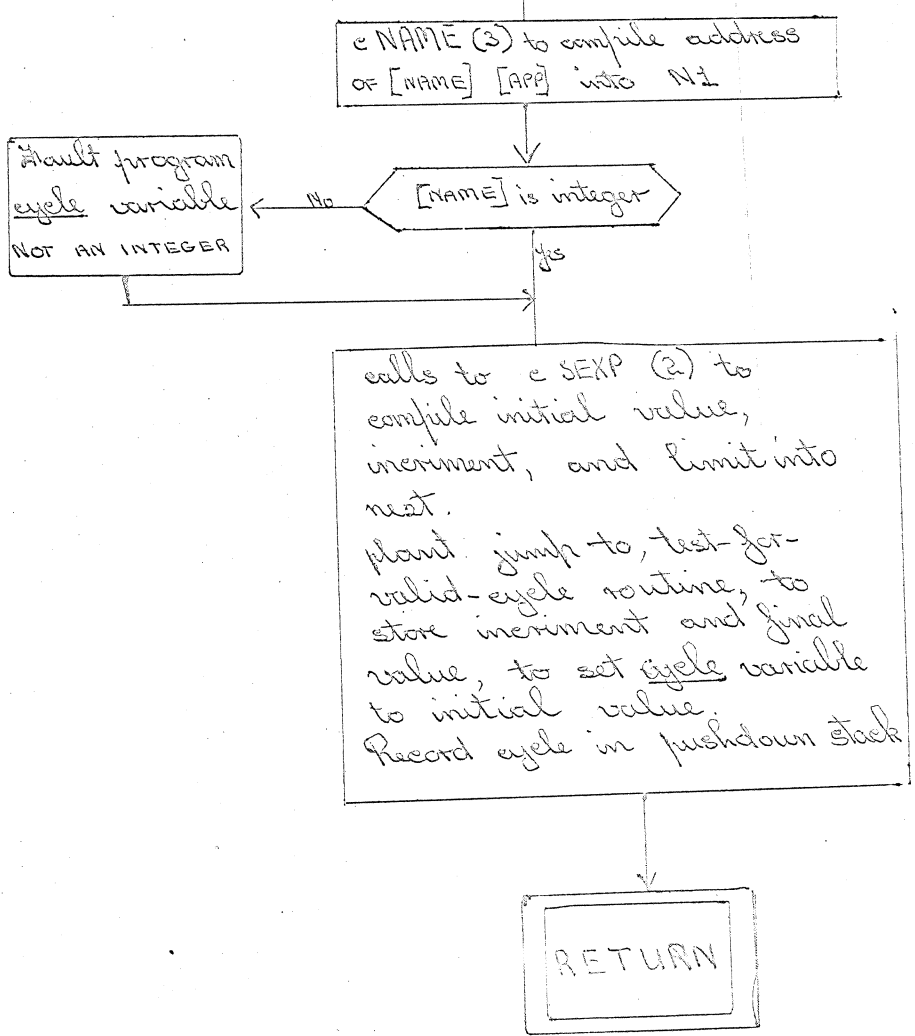 c NAME (3) to compile address
OF [NAME] [APP] into N1
Fault program
cycle variable
NOT AN INTEGER
No
[NAME] is integer
Yes
calls to c SEXP (2) to
compile initial value,
incriment, and limit into
nest.
plant jump to, test-for-
valid-cycle routine, to
store incriment and final
value, to set cycle variable
to initial value.
Record cycle in pushdown stack
RETURN